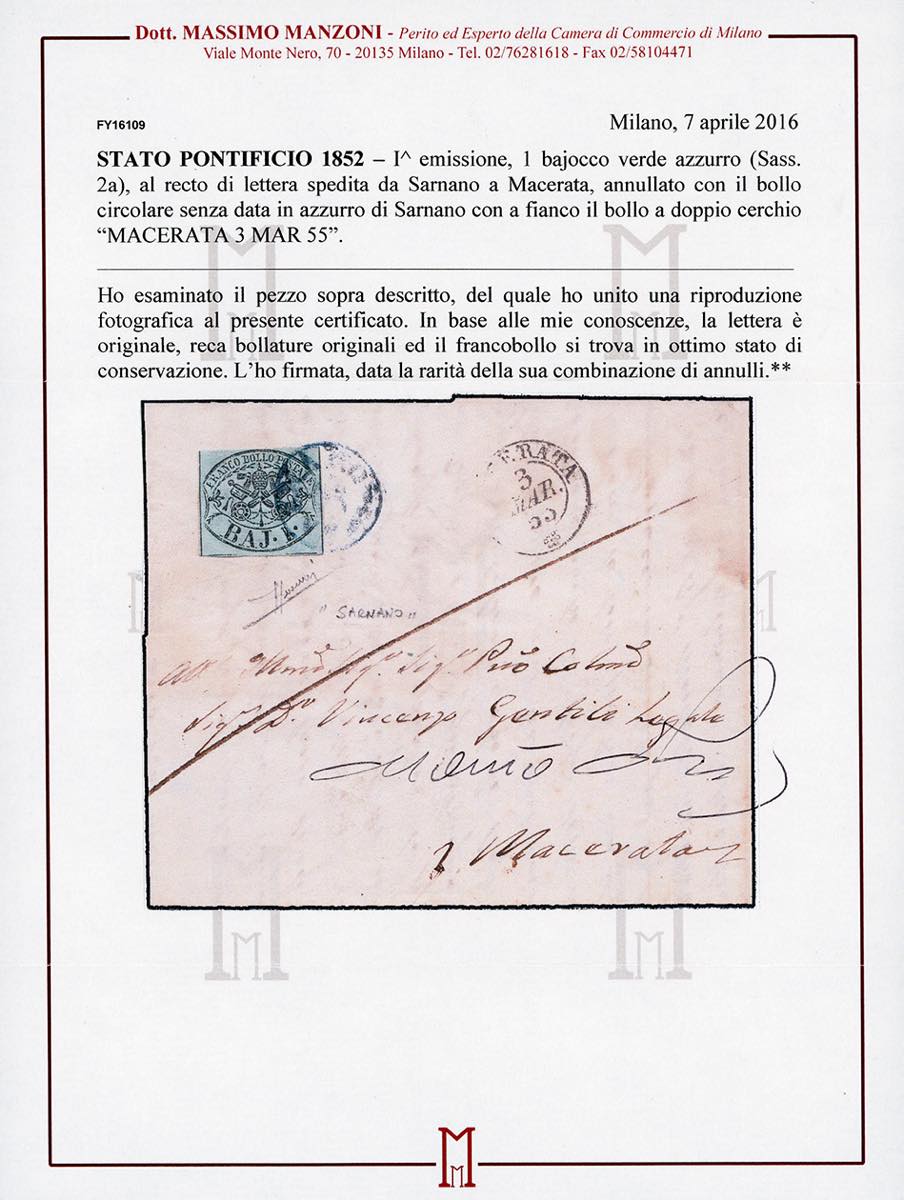 Dott. MASSIMO MANZONI - Perito ed Esperto della Camera di Commercio di Milano
Viale Monte Nero, 70 - 20135 Milano - Tel. 02/76281618 - Fax 02/58104471
FY16109
Milano, 7 aprile 2016
STATO PONTIFICIO 1852 – I^ emissione, 1 bajocco verde azzurro (Sass.
2a), al recto di lettera spedita da Sarnano a Macerata, annullato con il bollo
circolare senza data in azzurro di Sarnano con a fianco il bollo a doppio cerchio
“MACERATA 3 MAR 55”.
Ho esaminato il pezzo sopra descritto, del quale ho unito una riproduzione
fotografica al presente certificato. In base alle mie conoscenze, la lettera è
originale, reca bollature originali ed il francobollo si trova in ottimo stato di
conservazione. L’ho firmata, data la rarità della sua combinazione di annulli.**
FRANCO BOLLO POSTALE
BAJ. 1.
ERATA
3
MAR.
55
"SARNANO"
Vincenzo Gentili
Macerata